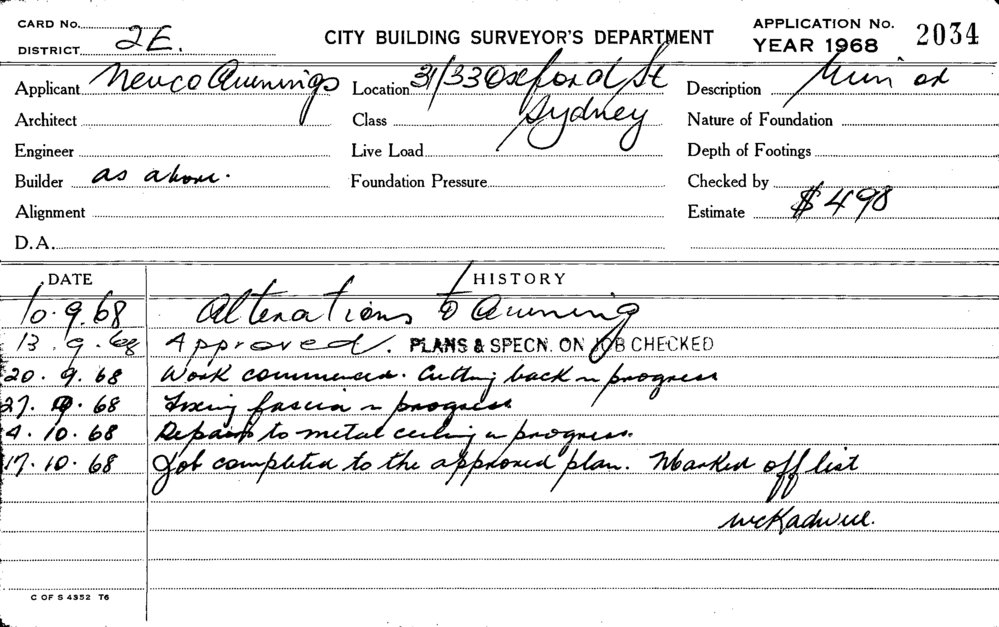 CARD No.
DISTRICT 2E.
CITY BUILDING SURVEYOR'S DEPARTMENT
APPLICATION No. 2034
YEAR 1968
Applicant Newco Awnings Location 31/33 Oxford St Sydney Description
Architect Class Nature of Foundation
Engineer Live Load Depth of Footings
Builder as above. Foundation Pressure Checked by
Alignment Estimate $498
D.A.
DATE HISTORY
10.9.68 Alterations to Awning
13.9.68 Approved. PLANS & SPECN. ON JOB CHECKED
20.9.68 Work commenced. Cutting back in progress
27.9.68 Fixing fascia in progress
4.10.68 Repairs to metal ceiling in progress.
17.10.68 Job completed to the approved plan. Marked off list
C OF S 4352 T6